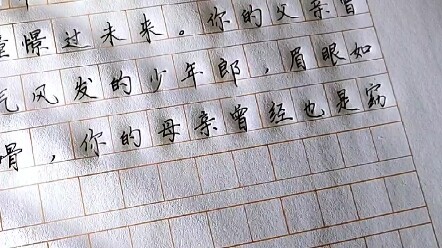 憧憬过未来。你的父亲曾
气风发的少年郎，眉眼如
骨，你的母亲曾经也是窈